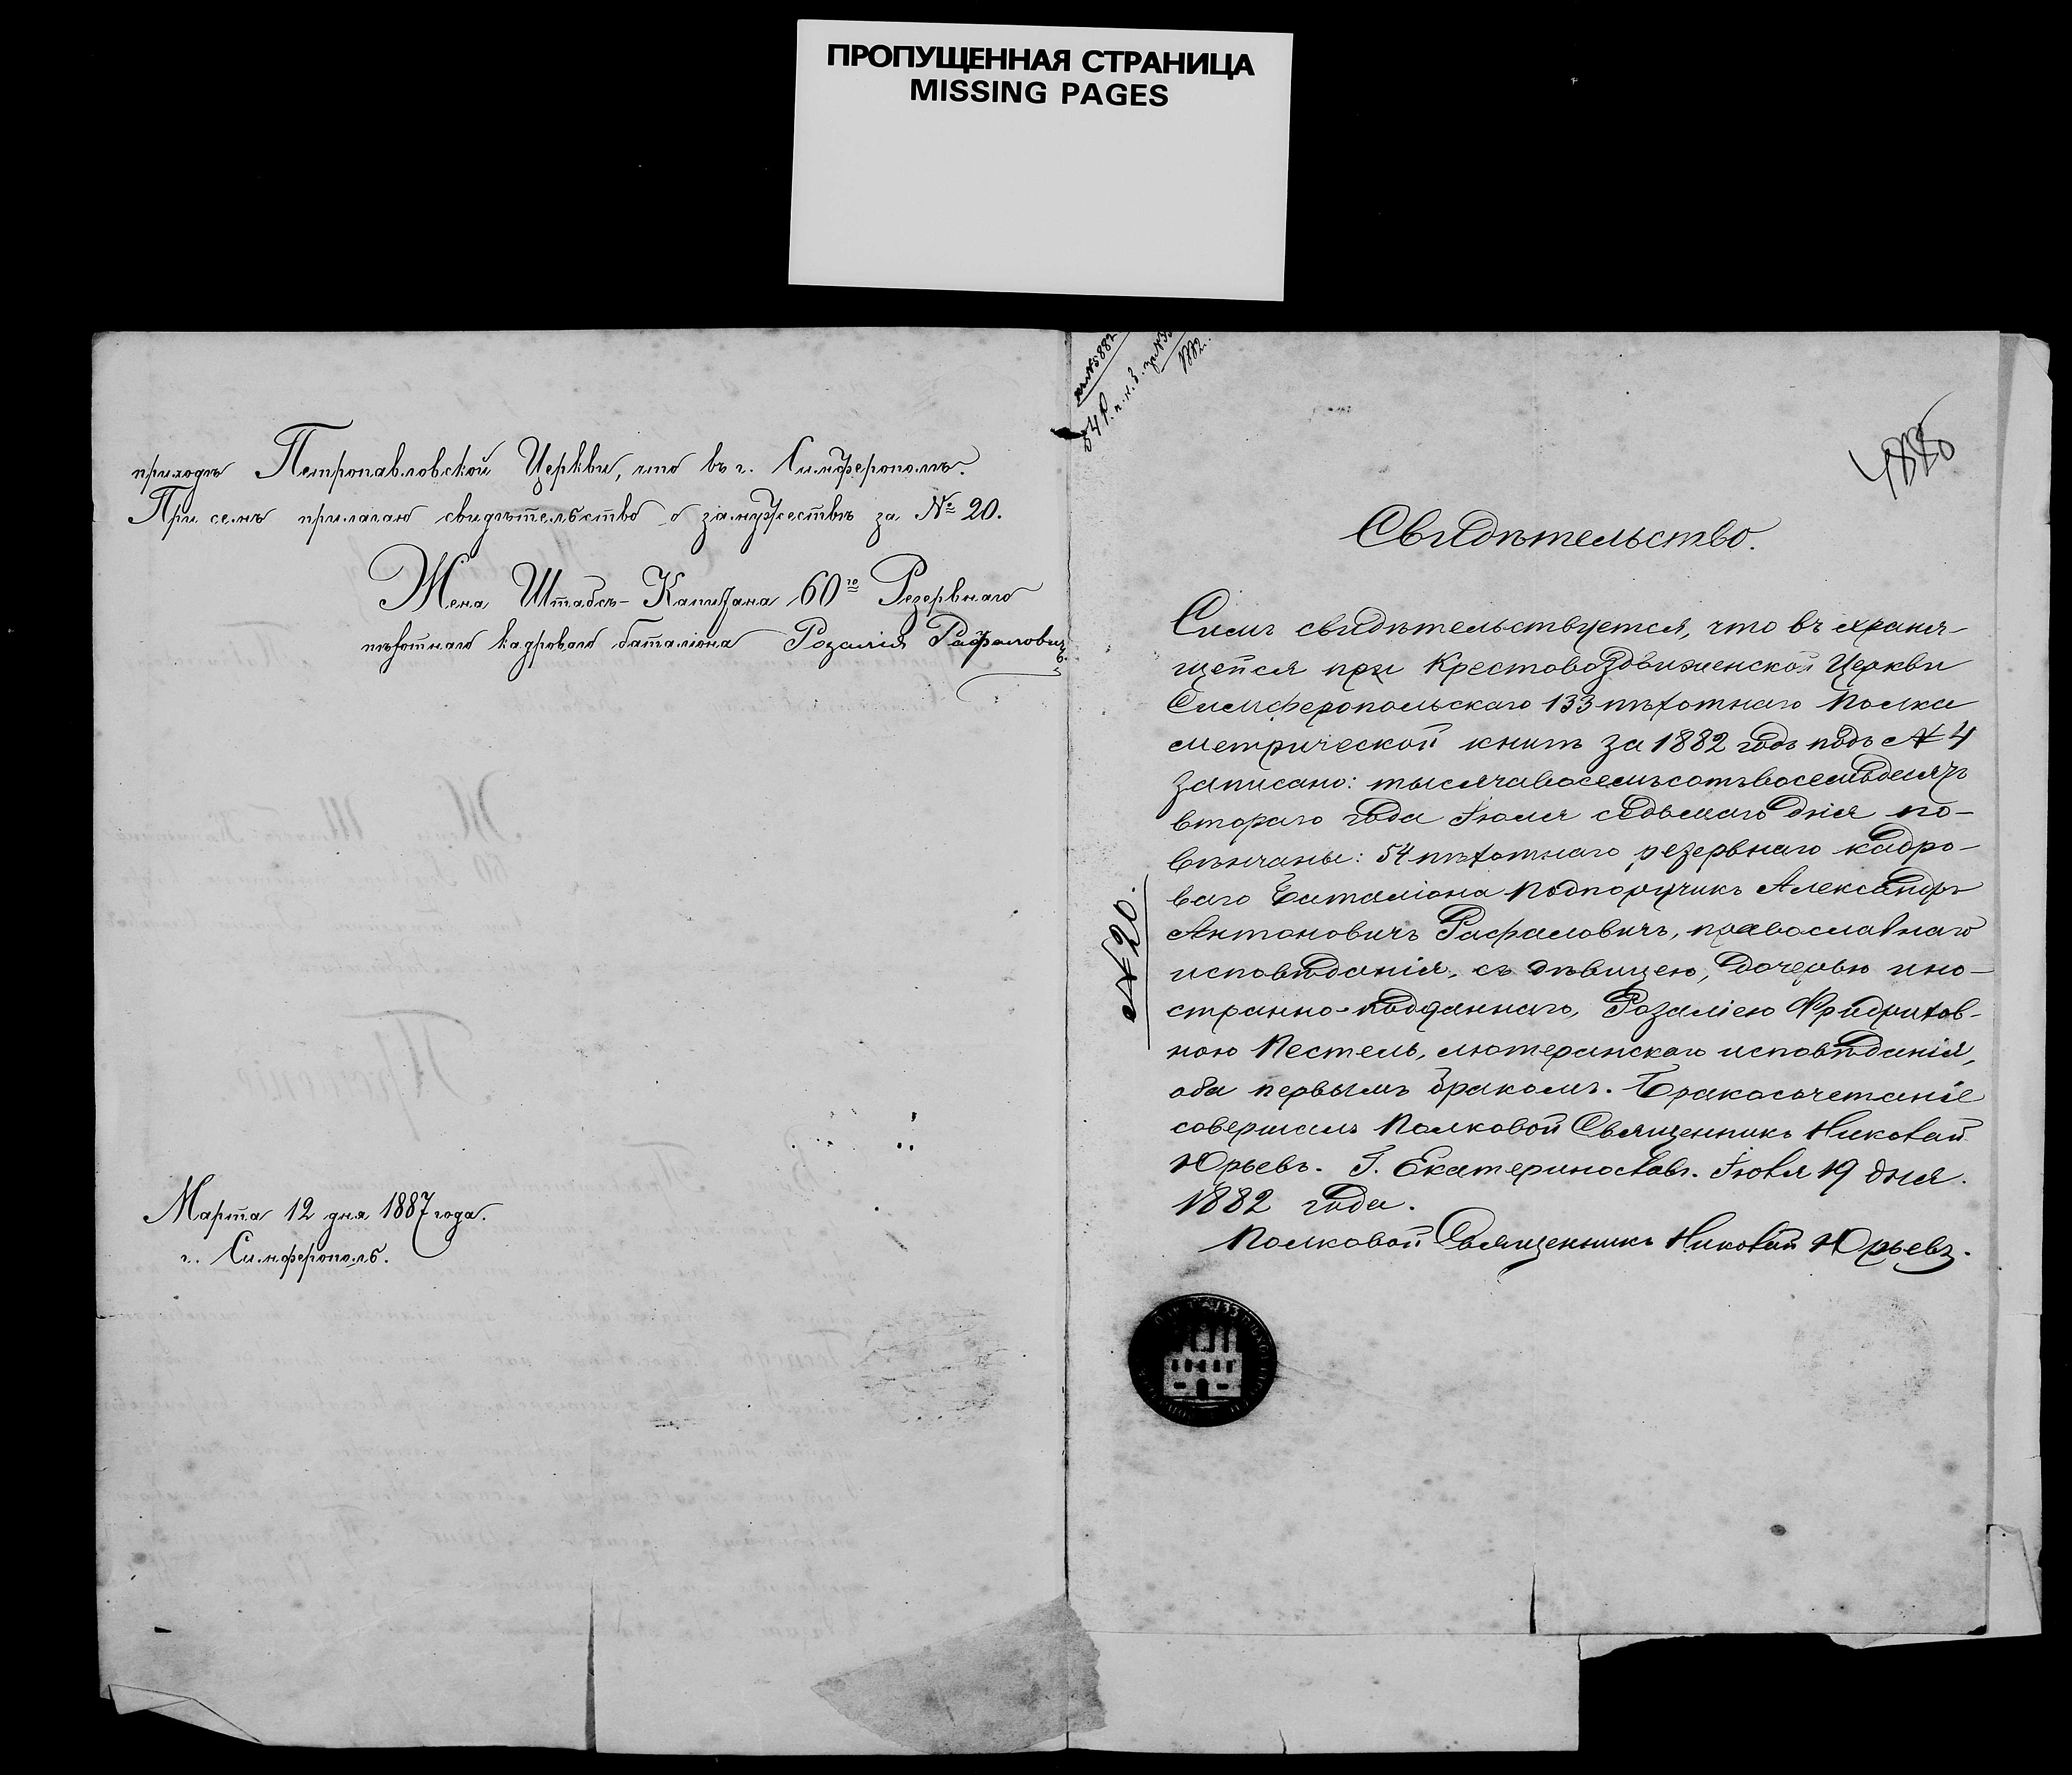 ПРОПУЩЕННАЯ СТРАНИЦА
MISSING PAGES
приходъ Петропавловской Церкви, что въ г. Симферополѣ.
При семъ прилагаю свидѣтельство о замужествѣ за № 20.
Жена Штабсъ-Капитана 60го Резервнаго
пѣхотнаго кадроваго баталіона Розалія Рафаловичъ
Марта 12 дня 1887 года.
г. Симферополь.
1882.
Свидѣтельство.
Симъ свидѣтельствуется, что въ храня-
щейся при Крестовоздвиженской Церкви
Симферопольскаго 133 пѣхотнаго Полка
метрической книгѣ за 1882 годъ подъ № 4
записано: тысячавосемьсотъвосемьдесятъ
втораго года Іюля седьмаго дня по-
вѣнчаны: 54 пѣхотнаго резервнаго кадро-
ваго Баталіона Подпоручикъ Александръ
Антоновичъ Рафаловичъ, православнаго
исповѣданія, съ дѣвицею, дочерью ино-
странно-подданнаго, Розаліею Фридрихов-
ною Пестель, лютеранскаго исповѣданія,
оба первымъ бракомъ. Бракосочетаніе
совершалъ Полковой Священникъ Николай
Юрьевъ. Г. Екатеринославъ. Іюля 19 дня.
1882 года.
Полковой Священникъ Николай Юрьевъ.
№ 20.